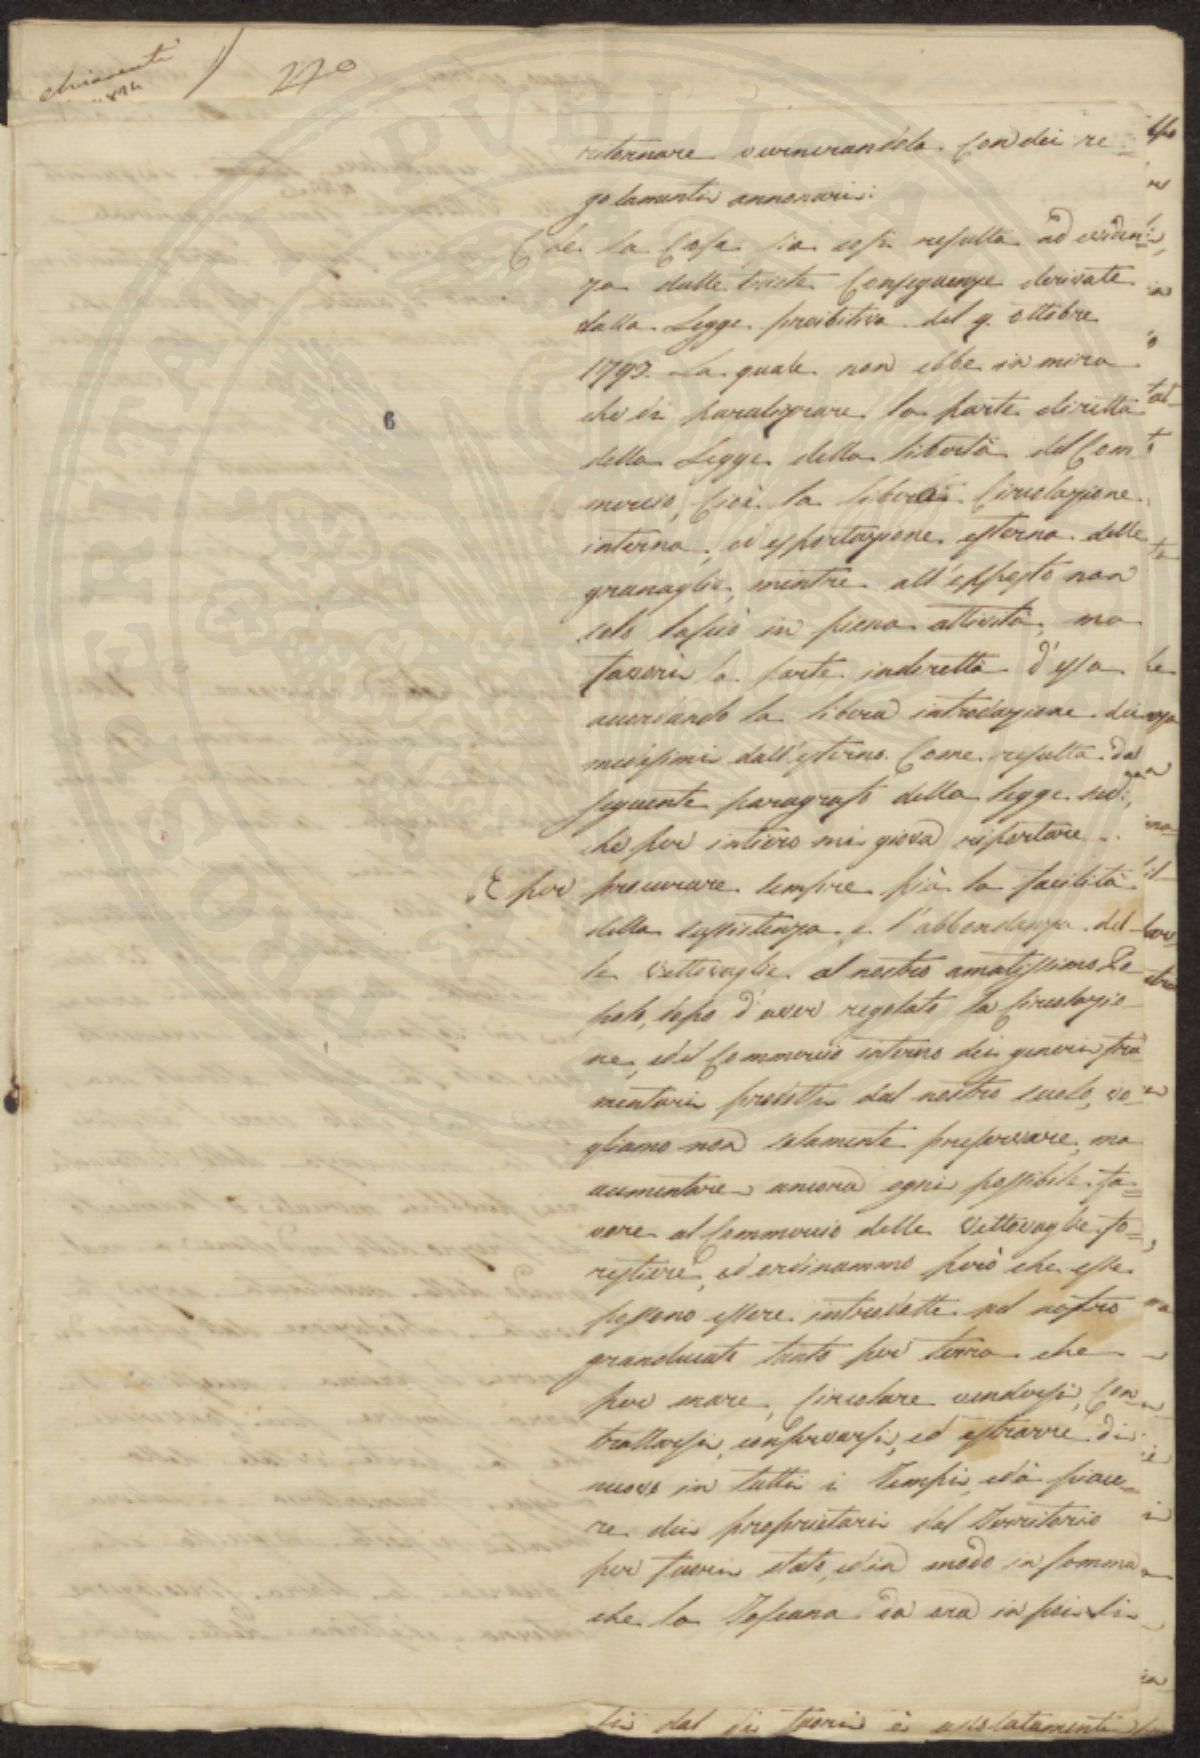 270
ritornare svernerandola con dei re=
golamenti annonari:
Che la Cosa sia così resulta ad eviden=
za dalle triste Conseguenze derivate
dalla Legge proibitiva del 9. ottobre
1793. La quale non ebbe in mira
che di paralizzare la parte diretta
della Legge della libertà del Com=
mercio, Cioè la libera Circolazione
interna, ed esportazione esterna delle
granaglie, mentre all'opposto non
solo lasciò in piena attività, ma
favorì la parte indiretta d'essa
accordando la libera introduzione dei
medesimi dall'esterno. Come resulta dal
seguente paragrafo della legge sud:,
che per intiero mi giova riportare.
"E per procurare sempre più la facilità
della sussistenza, e l'abbondanza del=
le Vettovaglie al nostro amatissimo Po
polo, dopo d'aver regolato la Circolazio
ne, ed il Commercio interno dei generi fru
mentari prodotti dal nostro suolo, vo=
gliamo non solamente preservare, ma
aumentare ancora ogni possibile fa=
vore al Commercio delle Vettovaglie fo=
restiere, ed ordinammo però che esse
possono essere introdotte nel nostro
granducato tanto per terra che
per mare, Circolare vendersi, Con=
trattarsi, conservarsi, ed estrarre di
nuovo in tutti i tempi, ed a piace=
re dei proprietari dal Territorio
per fuori stato, ed in modo in somma
che la Toscana da ora in poi li
di dal di fuori è assolutamente
6